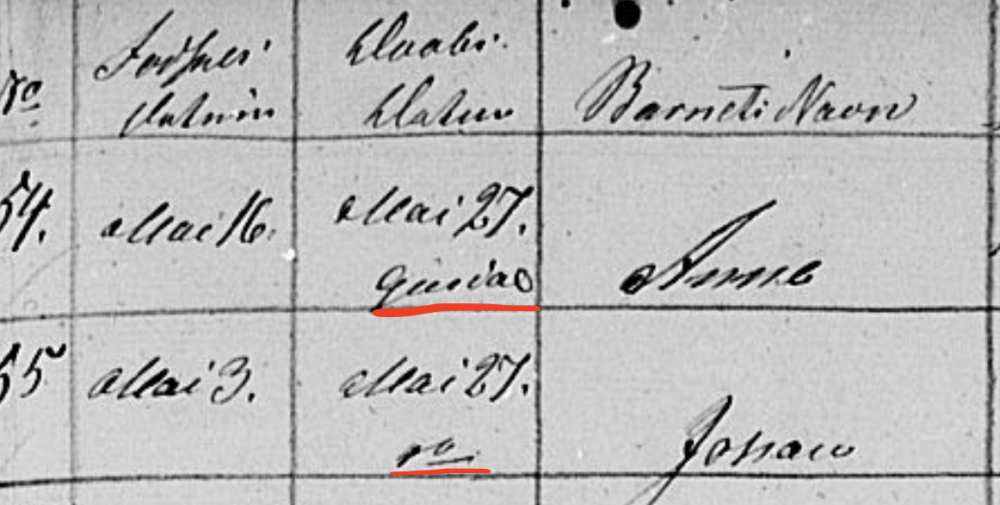 No Fødsels Daabs- Barnets Navn
datum Datum
54. Mai 16. Mai 27. Anne
55 Mai 3. Mai 27.
do Johan